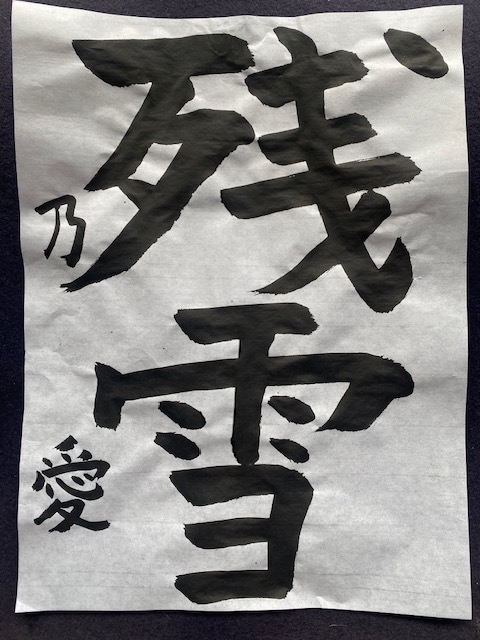 残雪
乃愛